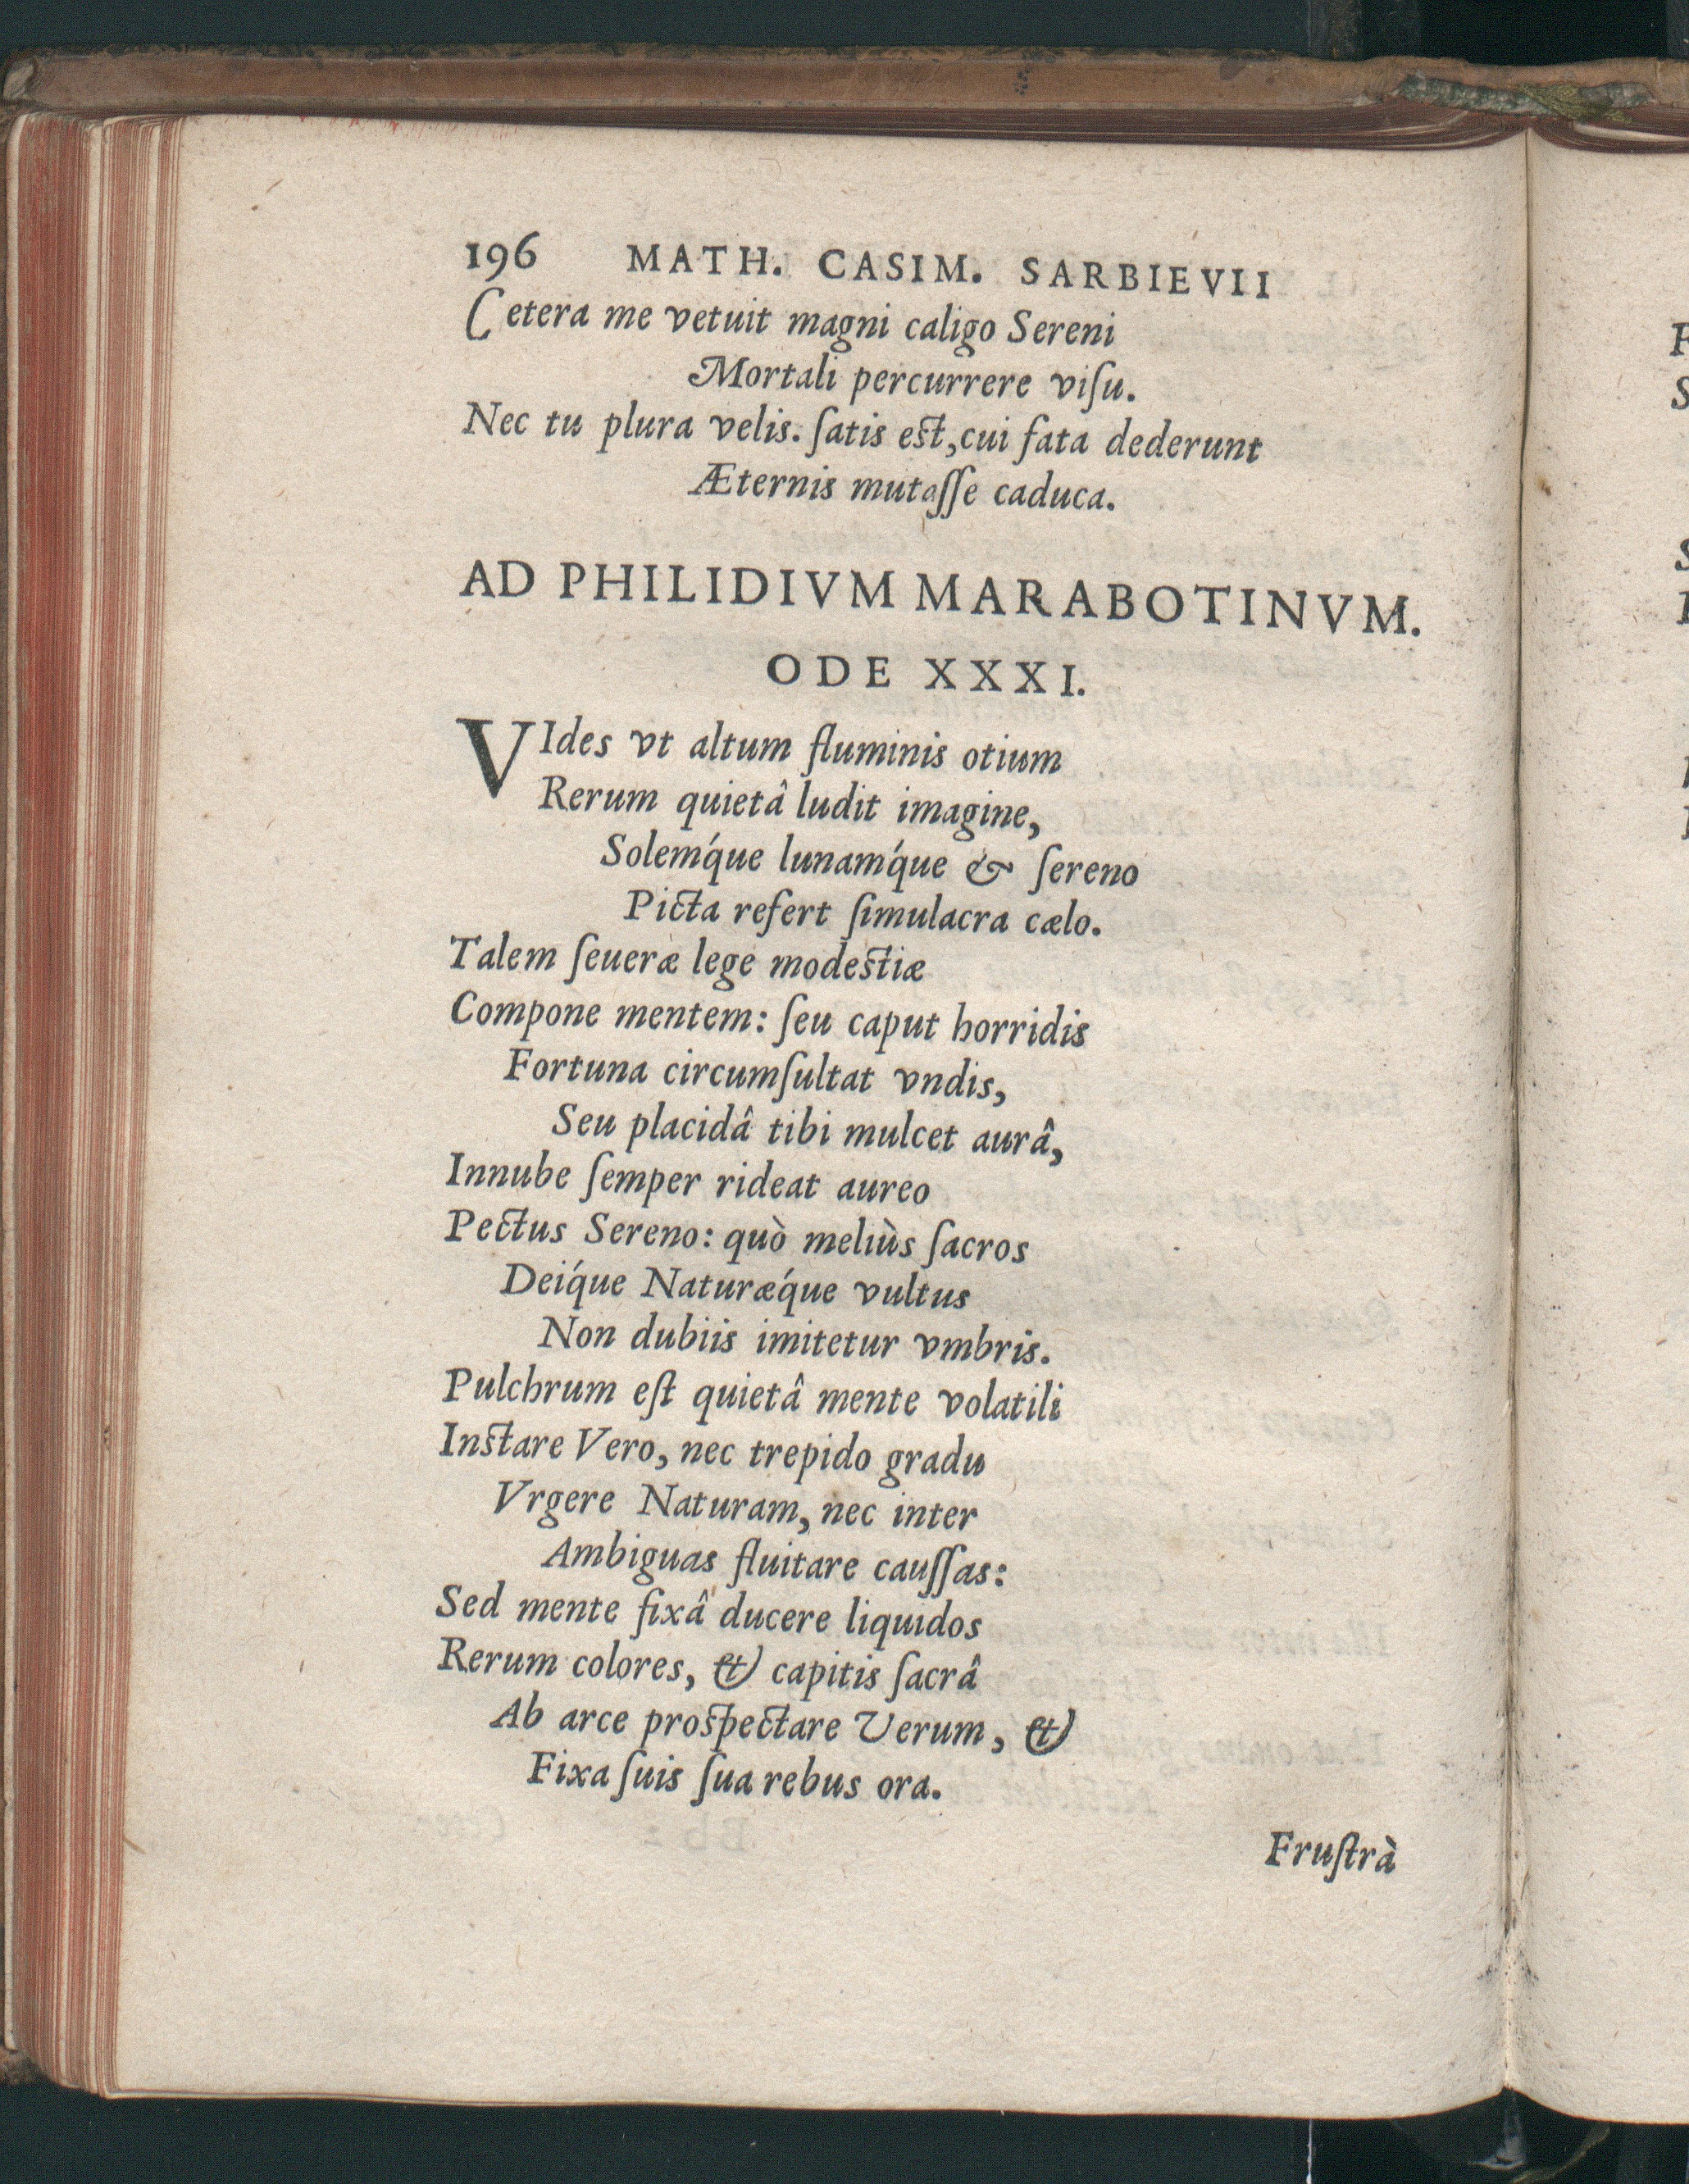 196 MATH. CASIM. SARBIEVII
Cetera me vetuit magni caligo Sereni
Mortali percurrere viſu.
Nec tu plura velis. ſatis est, cui fata dederunt
Æternis mutaſſe caduca.
AD PHILIDIVM MARABOTINVM.
ODE XXXI.
VIdes vt altum fluminis otium
Rerum quietâ ludit imagine,
Solemq́ue lunamq́ue & ſereno
Picta refert ſimulacra cælo.
Talem ſeueræ lege modestiæ
Compone mentem: ſeu caput horridis
Fortuna circumſultat vndis,
Seu placidâ tibi mulcet aurâ,
Innube ſemper rideat aureo
Pectus Sereno: quò meliùs ſacros
Deiq́ue Naturæq́ue vultus
Non dubiis imitetur vmbris.
Pulchrum eſt quietâ mente volatili
Instare Vero, nec trepido gradu
Vrgere Naturam, nec inter
Ambiguas fluitare cauſſas:
Sed mente fixâ ducere liquidos
Rerum colores, & capitis ſacrâ
Ab arce prospectare Verum, &
Fixa ſuis ſua rebus ora.
Fruſtrà